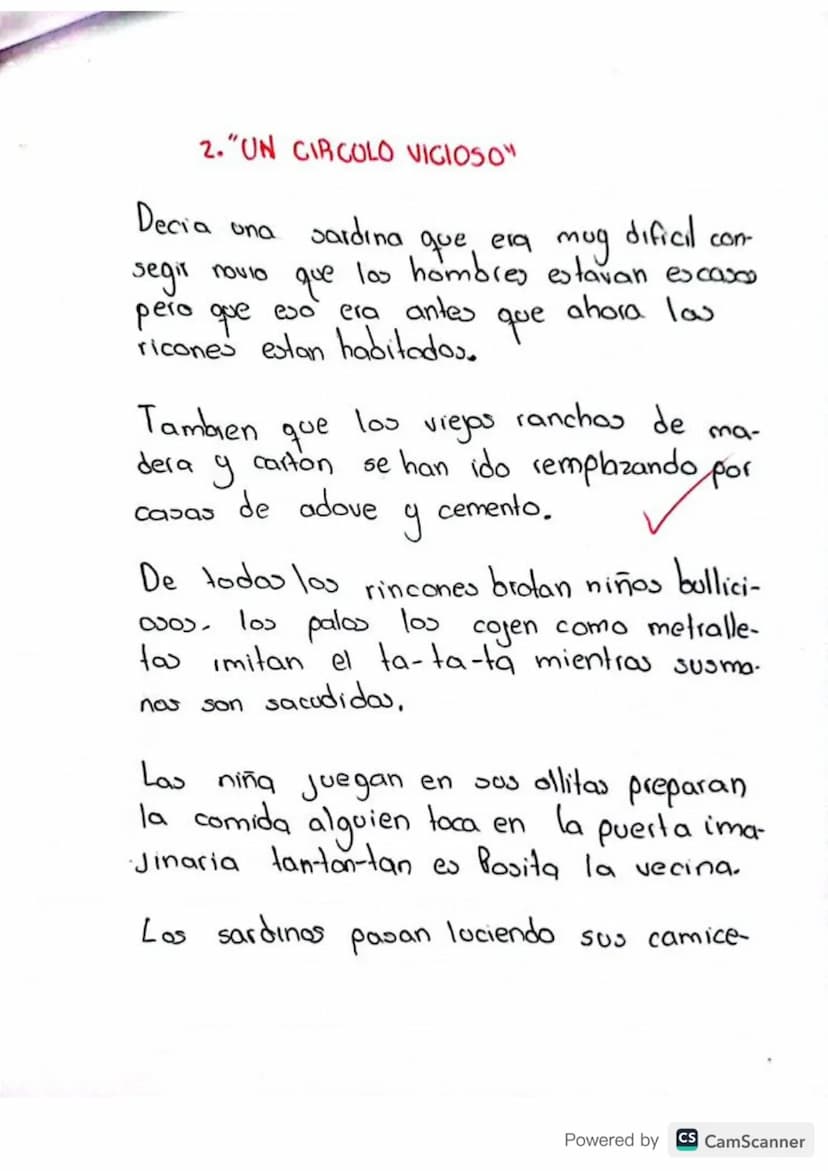 2. "UN CIRCOLO VICIOSO"
Decia una sardina que era muy dificil con-
segir novio que los hombres estavan escasos
pero que eso era antes que ahora los
ricones estan habitados.
Tambien que los viejos ranchos de ma-
dera y cartón se han ido remplazando por
casas de adove y cemento.
De todos los rincones brotan niños bullici-
osos. los palos los cojen como metralle-
tas imitan el ta-ta-ta mientras susma-
nos son sacudidas.
Las niña juegan en sus ollitas preparan
la comida alguien toca en la puerta ima-
jinaria tan-ton-tan es Rosita la vecina.
Los sardinos pasan luciendo sus camice-
Powered by CS CamScanner